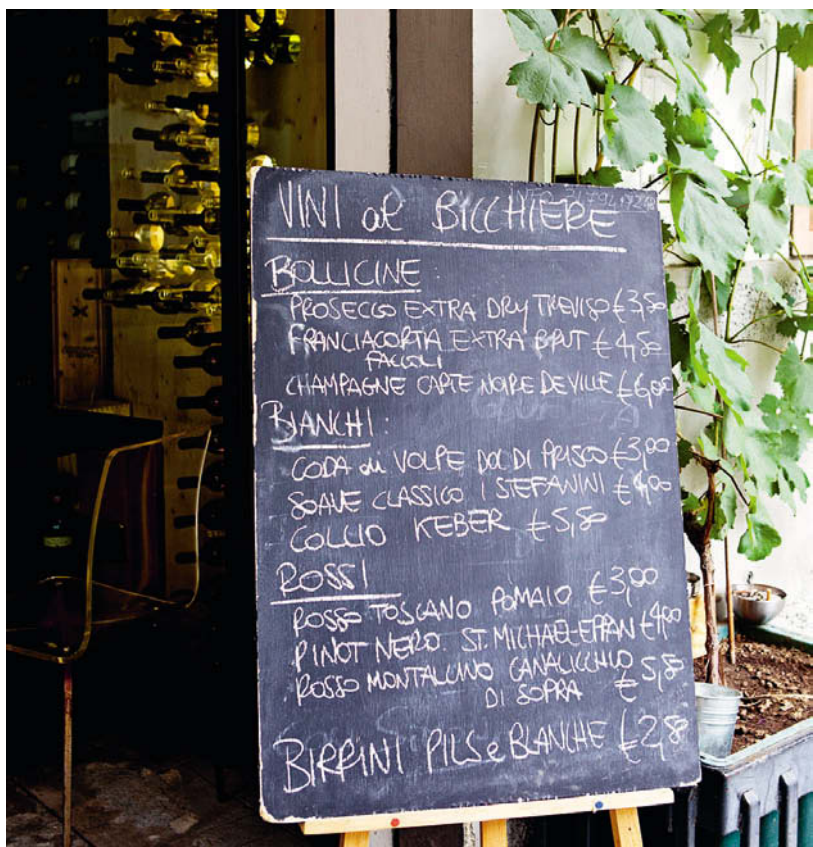 VINI al BICCHIERE
BOLLICINE:
PROSECCO EXTRA DRY TREVISO €3,50
FRANCIACORTA EXTRA BRUT €4,50
FACCOLI
CHAMPAGNE CARTE NOIRE DE VILLE €6,00
BIANCHI:
CODA di VOLPE DOC DI PRISCO €3,00
SOAVE CLASSICO I STEFANINI €4,00
COLLIO KEBER €5,50
ROSSI
ROSSO TOSCANO POMAIO €3,00
PINOT NERO ST. MICHAEL-EPPAN €4,00
ROSSO MONTALCINO CANALICCHIO
DI SOPRA € 5,50
BIRRINI PILS e BLANCHE €2,80